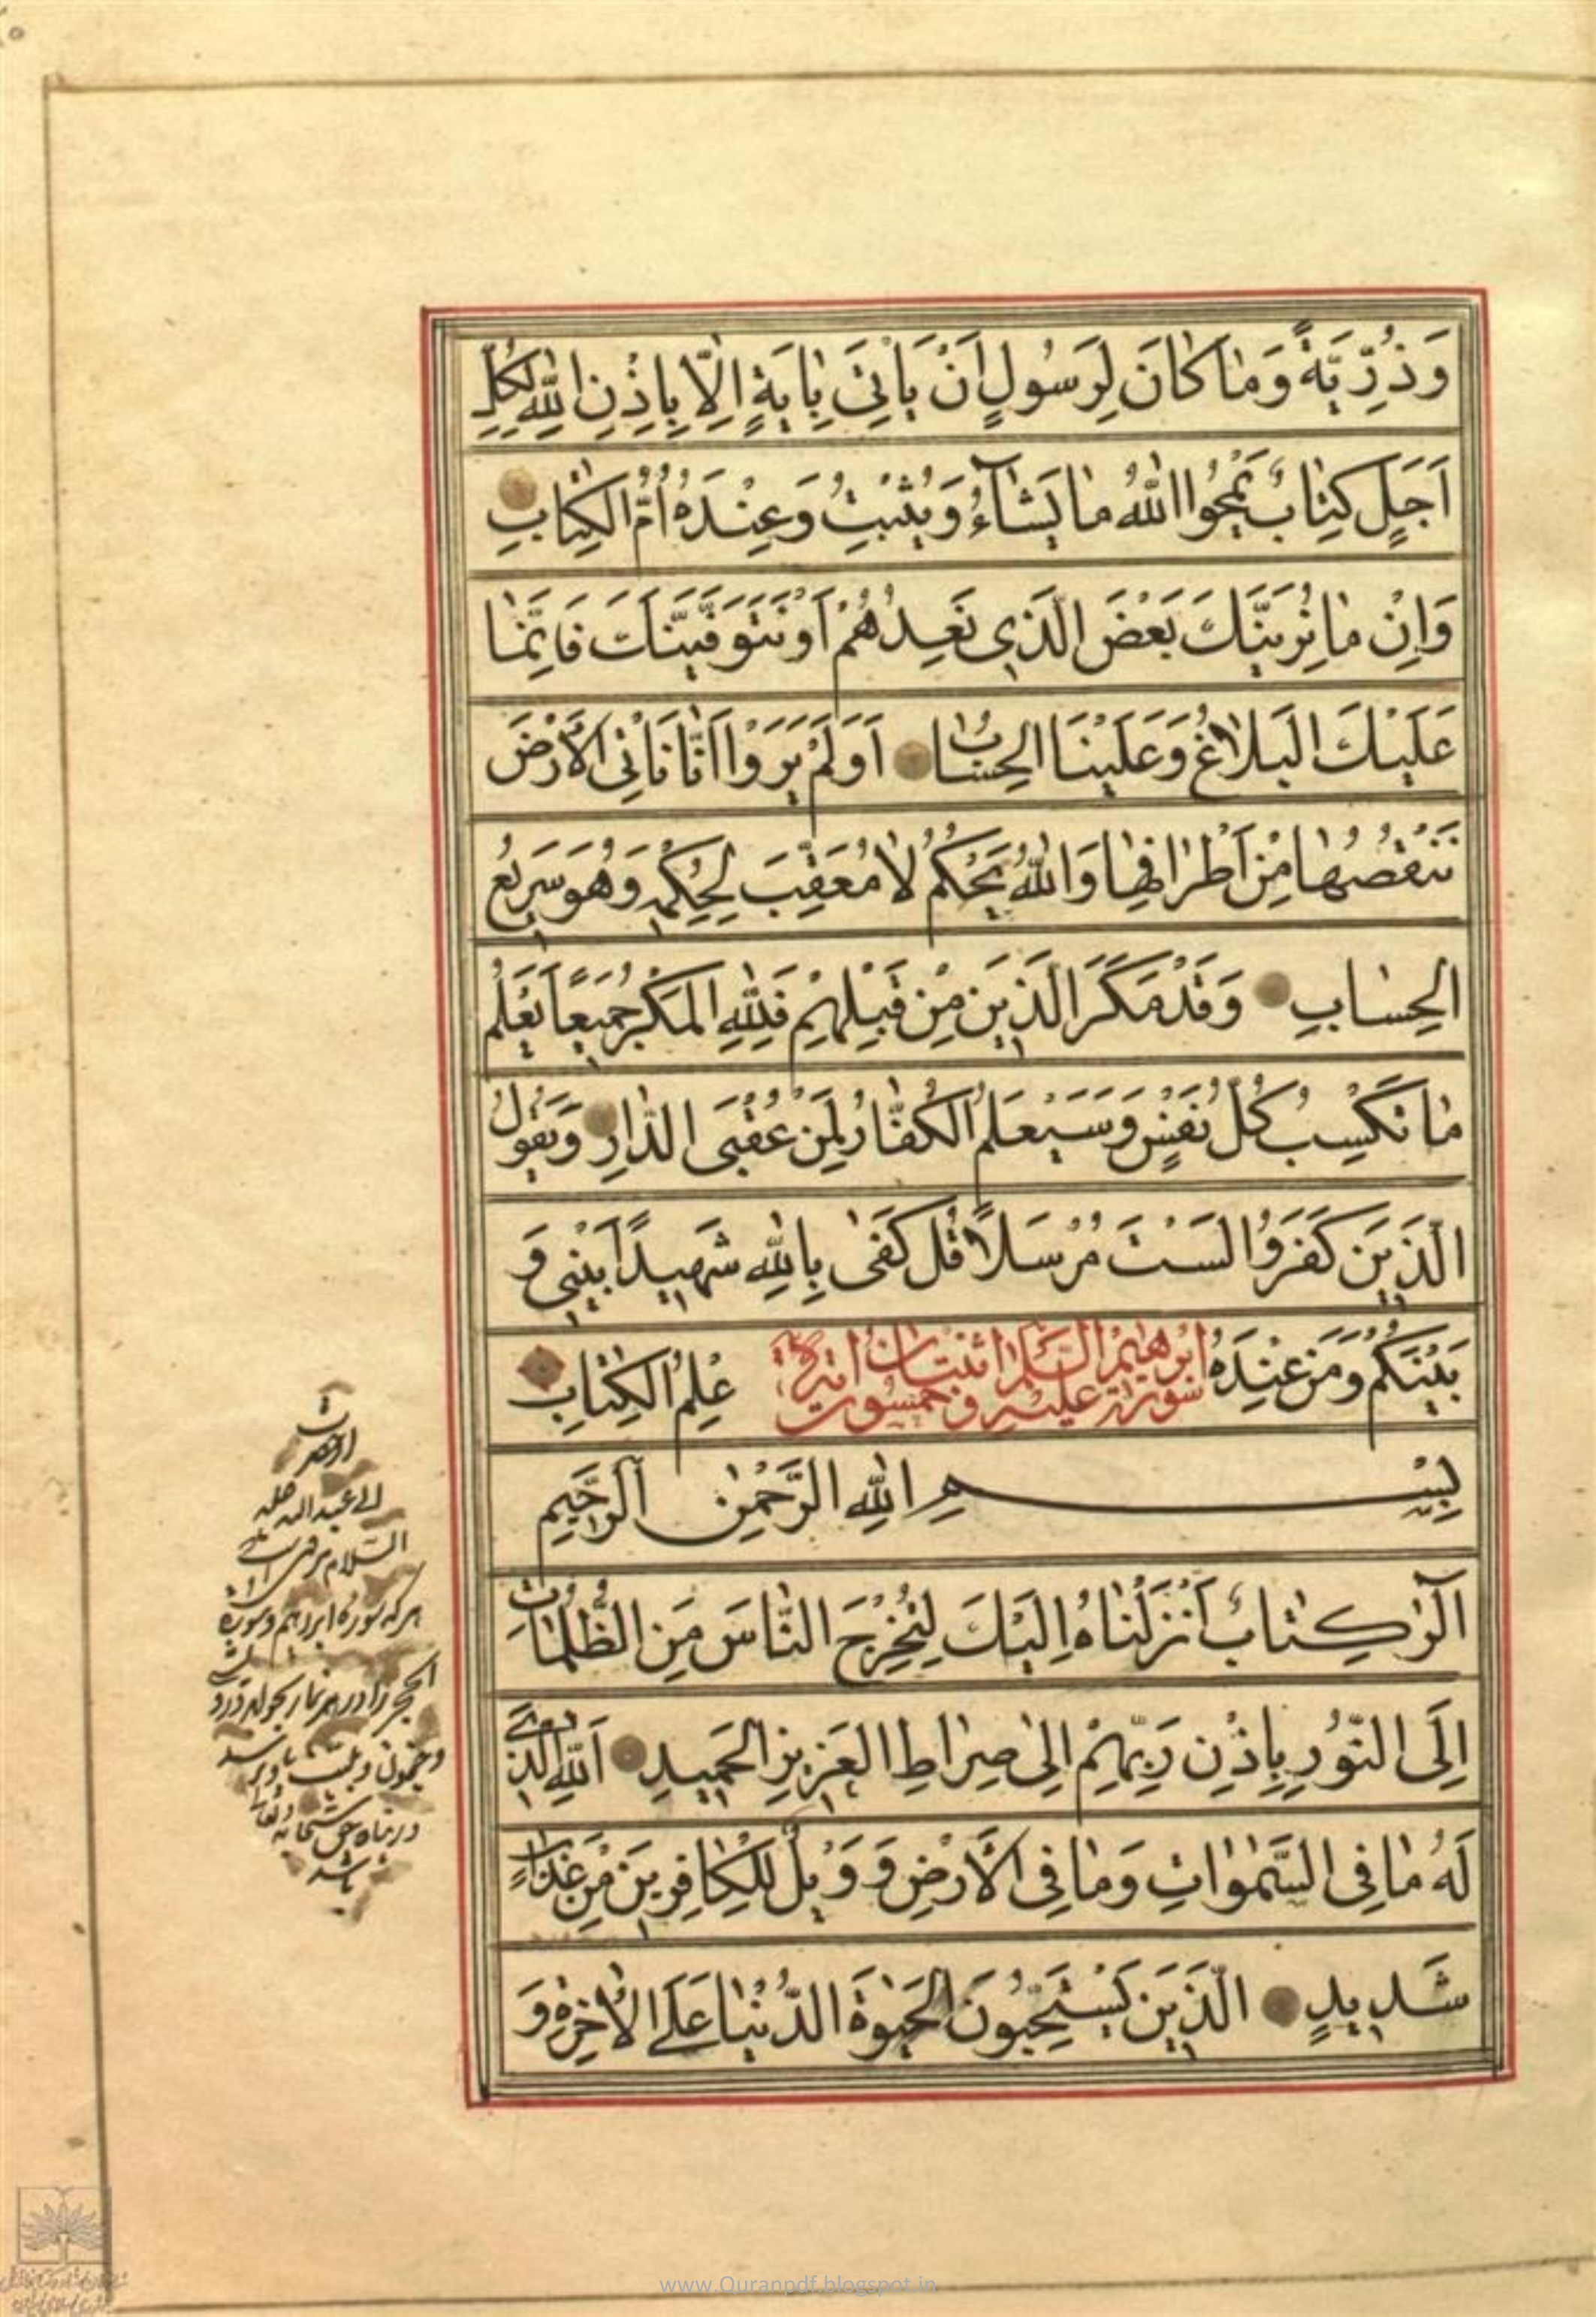 وَذُرِّيَّةً وَمَا كَانَ لِرَسُولٍ اَنْ يَاْتِيَ بِاٰيَةٍ اِلَّا بِاِذْنِ اللّٰهِ لِكُلِّ
اَجَلٍ كِتَابٌ يَمْحُوا اللّٰهُ مَا يَشَآءُ وَيُثْبِتُ وَعِنْدَهُ اُمُّ الْكِتَابِ
وَاِنْ مَا نُرِيَنَّكَ بَعْضَ الَّذِي نَعِدُهُمْ اَوْ نَتَوَفَّيَنَّكَ فَاِنَّمَا
عَلَيْكَ الْبَلَاغُ وَعَلَيْنَا الْحِسَابُ اَوَلَمْ يَرَوْا اَنَّا نَاْتِي الْاَرْضَ
نَنْقُصُهَا مِنْ اَطْرَافِهَا وَاللّٰهُ يَحْكُمُ لَا مُعَقِّبَ لِحُكْمِهِ وَهُوَ سَرِيعُ
الْحِسَابِ وَقَدْ مَكَرَ الَّذِينَ مِنْ قَبْلِهِمْ فَلِلّٰهِ الْمَكْرُ جَمِيعًا يَعْلَمُ
مَا تَكْسِبُ كُلُّ نَفْسٍ وَسَيَعْلَمُ الْكُفَّارُ لِمَنْ عُقْبَى الدَّارِ وَيَقُولُ
الَّذِينَ كَفَرُوا لَسْتَ مُرْسَلًا قُلْ كَفٰى بِاللّٰهِ شَهِيدًا بَيْنِي وَ
بَيْنَكُمْ وَمَنْ عِنْدَهُ عِلْمُ الْكِتَابِ
سورة ابرهيم عليه السلام
بِسْمِ اللّٰهِ الرَّحْمٰنِ الرَّحِيمِ
الٓرٰ كِتَابٌ اَنْزَلْنَاهُ اِلَيْكَ لِتُخْرِجَ النَّاسَ مِنَ الظُّلُمَاتِ
اِلَى النُّورِ بِاِذْنِ رَبِّهِمْ اِلٰى صِرَاطِ الْعَزِيزِ الْحَمِيدِ اَللّٰهِ الَّذِي
لَهُ مَا فِي السَّمٰوَاتِ وَمَا فِي الْاَرْضِ وَوَيْلٌ لِلْكَافِرِينَ مِنْ عَذَابٍ
شَدِيدٍ الَّذِينَ يَسْتَحِبُّونَ الْحَيٰوةَ الدُّنْيَا عَلَى الْاٰخِرَةِ وَ
السلام
هر كه سوره ابراهيم و سوره
الحجر را در
در پناه حق سبحانه
باشد
www.Quranpdf.blogspot.in